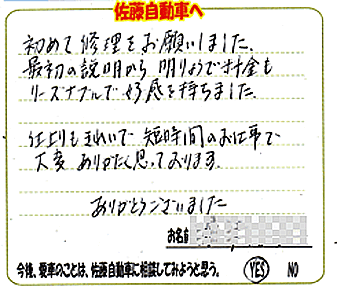 佐藤自動車へ
初めて修理をお願いしました。
最初の説明から明りょうで料金も
リーズナブルで好感を持ちました。
仕上りもきれいで短時間のお仕事で
大変ありがたく思っております。
ありがとうございました
お名前
今後、愛車のことは、佐藤自動車に相談してみようと思う。 YES NO